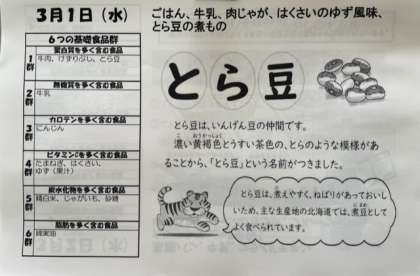 3月1日（水）
ごはん、牛乳、肉じゃが、はくさいのゆず風味、
とら豆の煮もの
６つの基礎食品群
蛋白質を多く含む食品
1群
牛肉、けずりぶし、とら豆
無機質を多く含む食品
2群
牛乳
カロテンを多く含む食品
3群
にんじん
ビタミンCを多く含む食品
4群
たまねぎ、はくさい、
ゆず（果汁）
炭水化物を多く含む食品
5群
精白米、じゃがいも、砂糖
脂肪を多く含む食品
6群
綿実油
とら豆
とら豆は、いんげん豆の仲間です。
濃い黄褐色とうすい茶色の、とらのような模様があ
ることから、「とら豆」という名前がつきました。
とら豆は、煮えやすく、ねばりがあっておいし
いため、主な生産地の北海道では、煮豆として
よく食べられています。